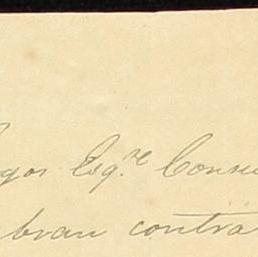 gos Esq.re Consu
bran contra